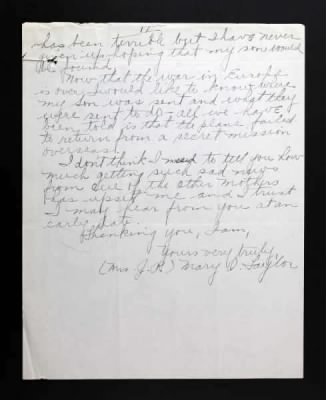 has been terrible but I have never
given up hoping that my son would
be found.
Now that the war in Europe
is over would like to know where
my son was sent and what they
were sent to do. all we have
been told is that the plane failed
to return from a secret mission
overseas.
I don't think I need to tell you how
much getting such sad news
from one of the other mothers
has upset me and I trust
I may hear from you at an
early date.
Thanking you, I am,
Yours very truly,
(Mrs J.R.) Mary D. Taylor